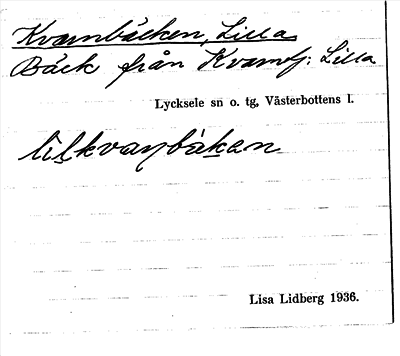 Kvarnbäcken, Lilla
Bäck från Kvarntj: Lilla
Lycksele sn o. tg, Västerbottens l.
Lisa Lidberg 1936.